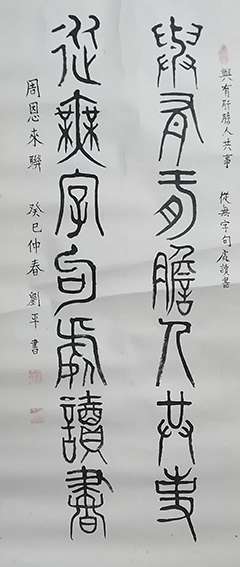 與有肝膽人共事 從無字句處讀書
與有肝膽人共事
從無字句處讀書
周恩來聯 癸巳仲春 劉平書